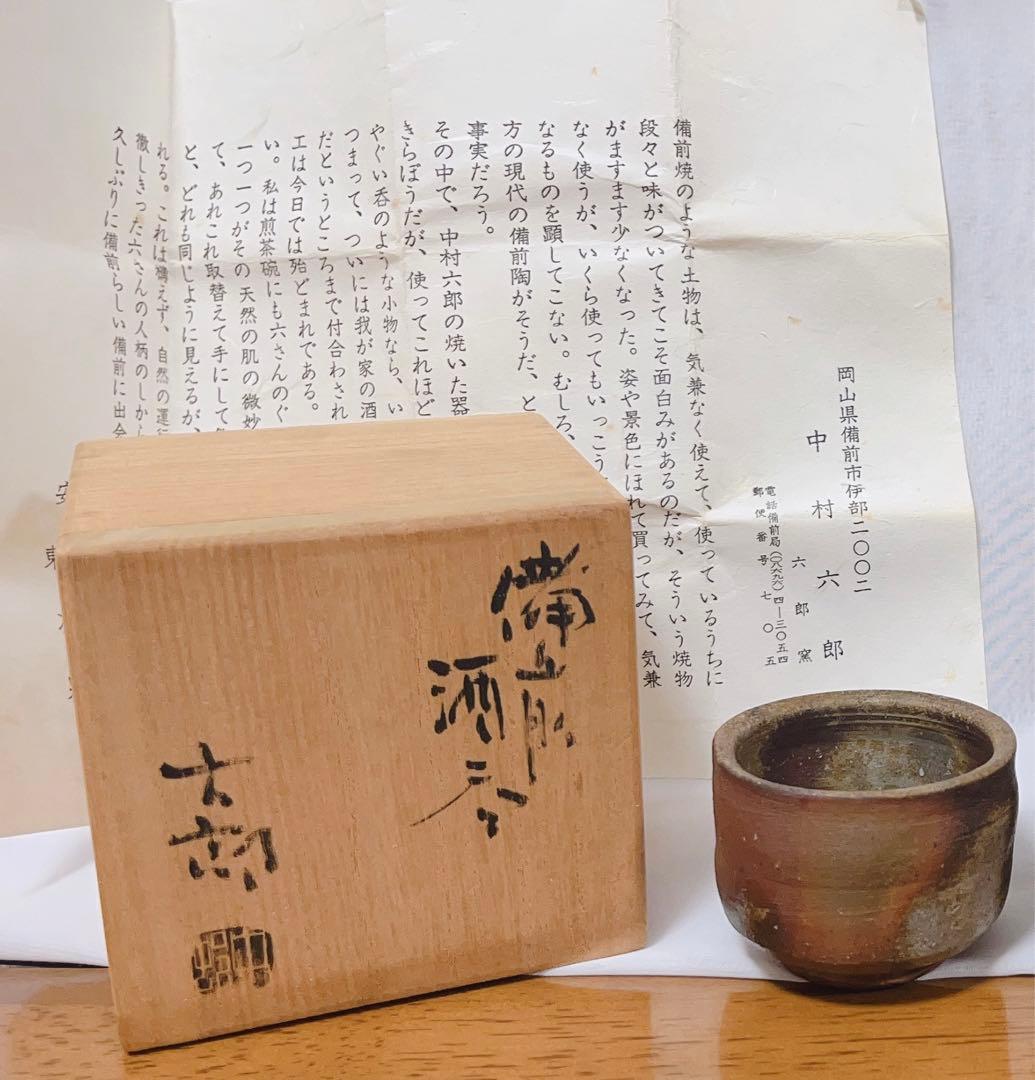 岡山県備前市伊部二〇〇二
中村六郎
六郎窯
電話備前局(〇八六九六)四―三〇五四
郵便番号七〇五
備前焼のような土物は、気兼なく使えて、使っているうちに
段々と味がついてきてこそ面白みがあるのだが、そういう焼物
がますます少なくなった。姿や景色にほれて買ってみて、気兼
なく使うが、いくら使ってもいっこう
なるものを顕してこない。むしろ、
方の現代の備前陶がそうだ、と
事実だろう。
その中で、中村六郎の焼いた器
きらぼうだが、使ってこれほど
やぐい呑のような小物なら、い
つまって、ついには我が家の酒
だというところまで付合わされ
工は今日では殆どまれである。
い。私は煎茶碗にも六さんのぐ
一つ一つがその天然の肌の微妙
て、あれこれ取替えて手にして
と、どれも同じように見えるが、
れる。これは構えず、自然の運行
徹しきった六さんの人柄のしか
久しぶりに備前らしい備前に出会
安東
備前
酒呑
六郎